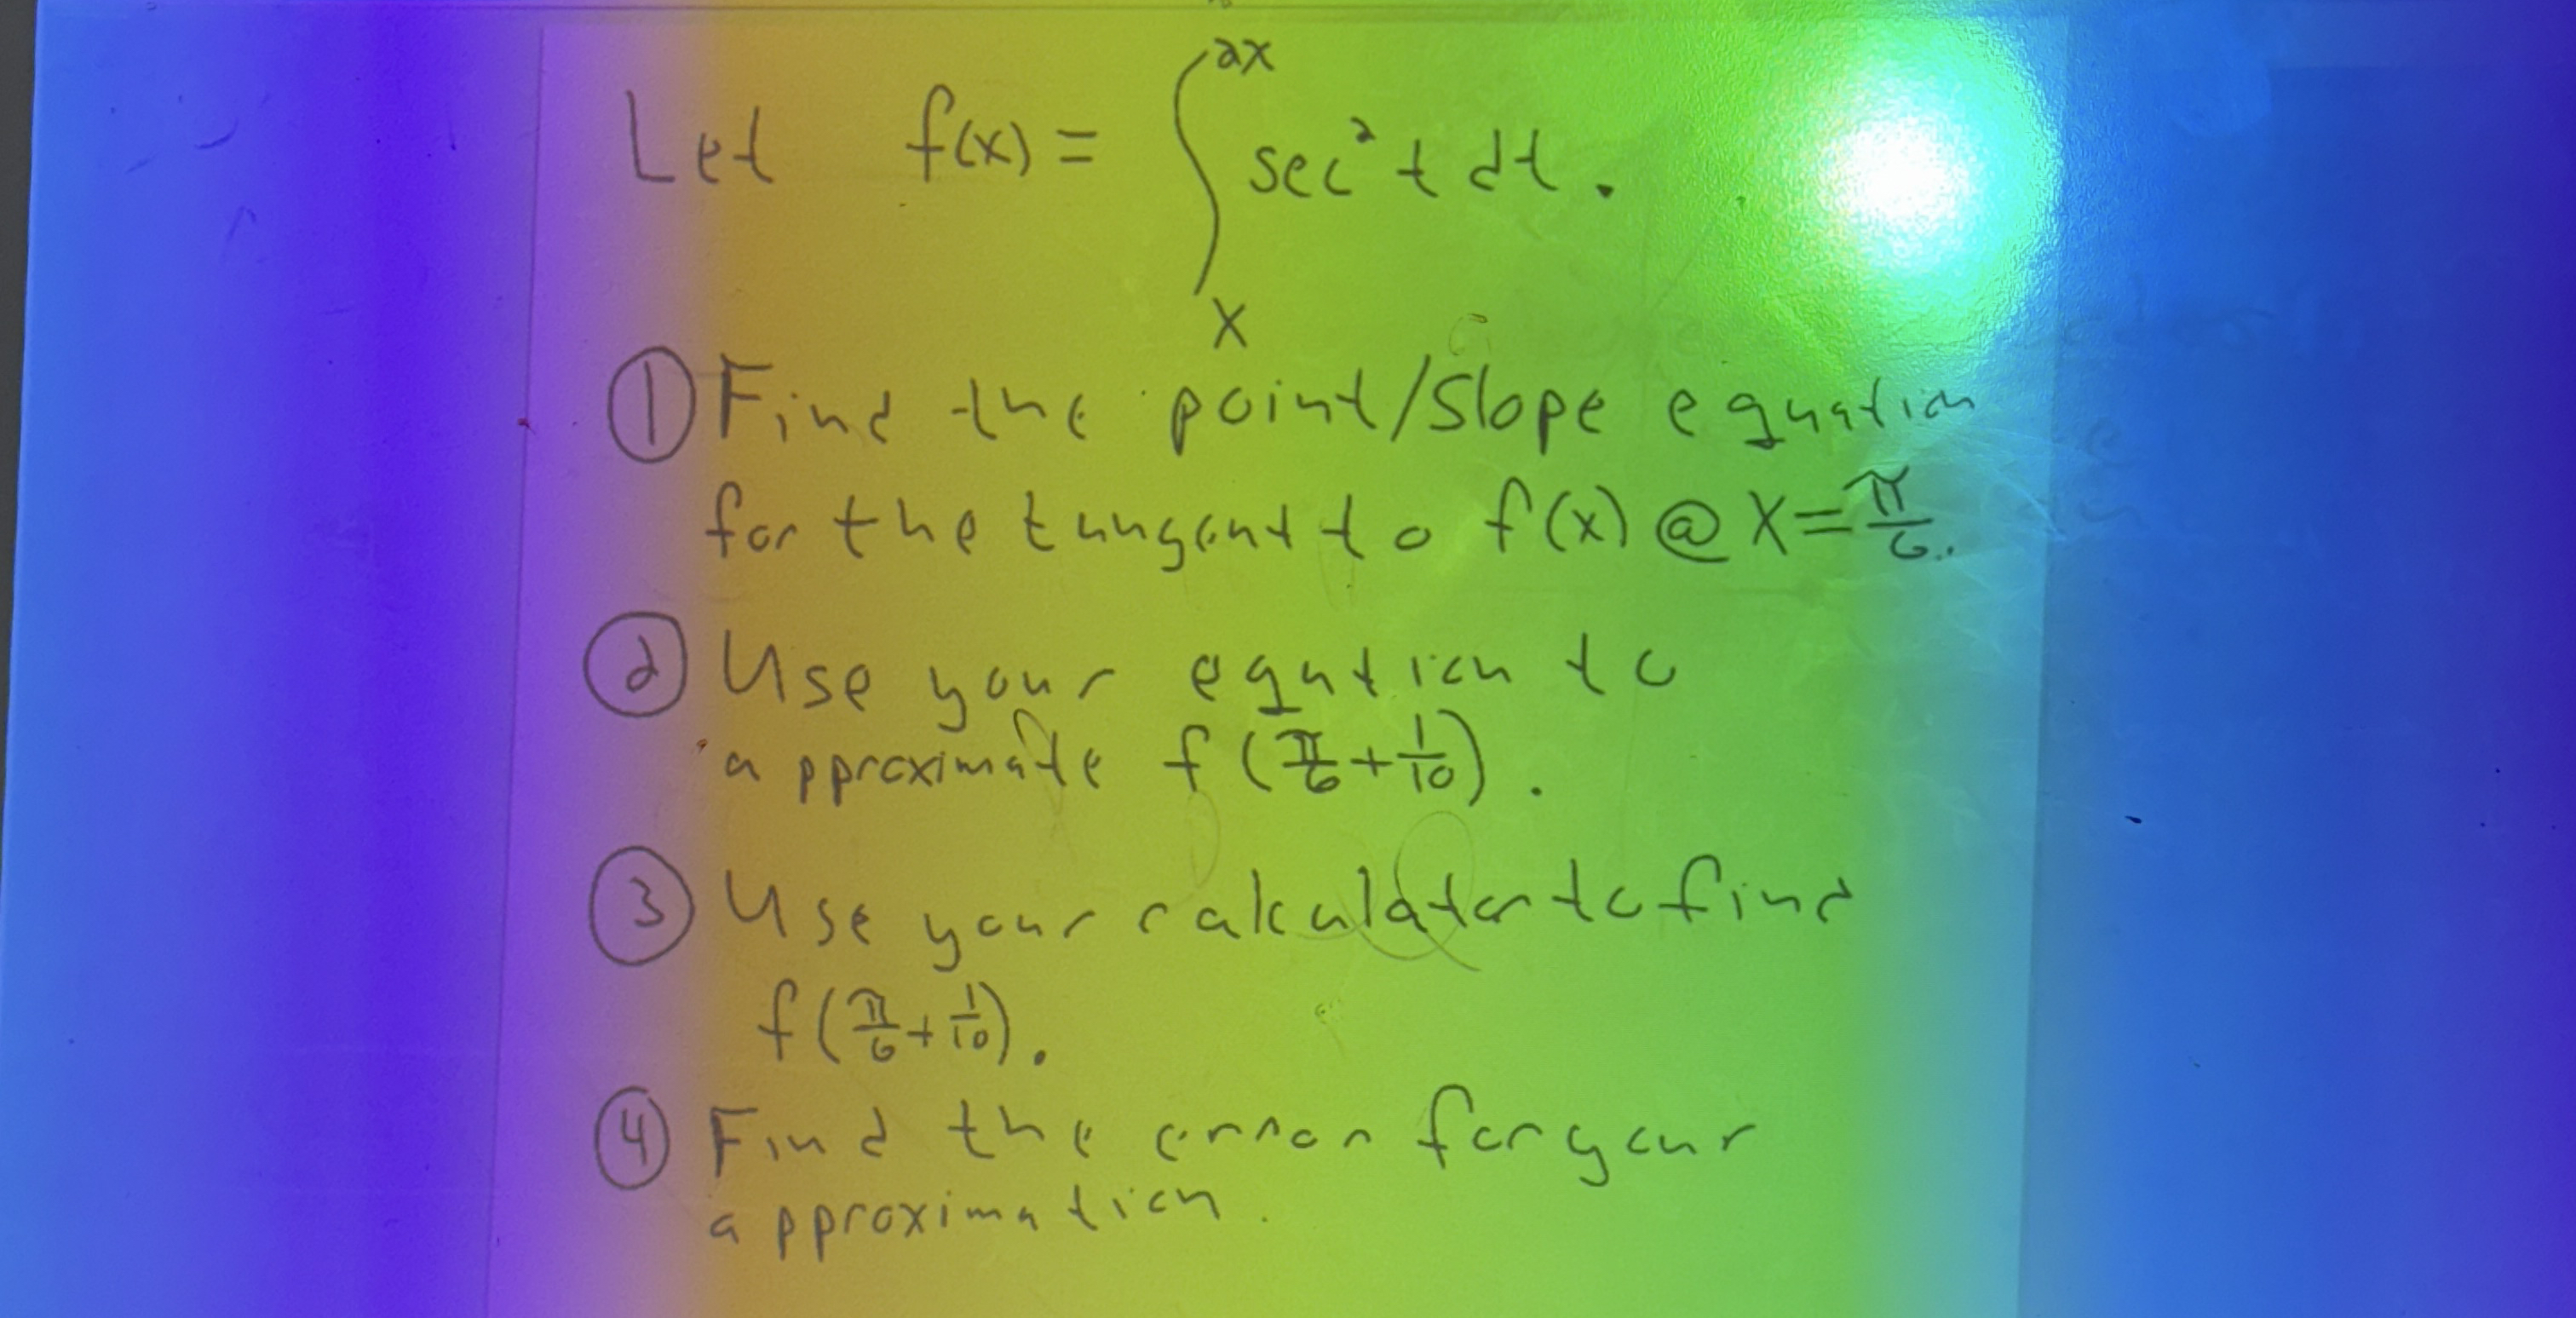 Let f(x) = ∫_x^{2x} sec² t dt.
① Find the point/slope equation
for the tangent to f(x) @ x = π/6.
② Use your eqution to
approximate f(π/6 + 1/10).
③ Use your calculator to find
f(π/6 + 1/10).
④ Find the error for your
approximation.